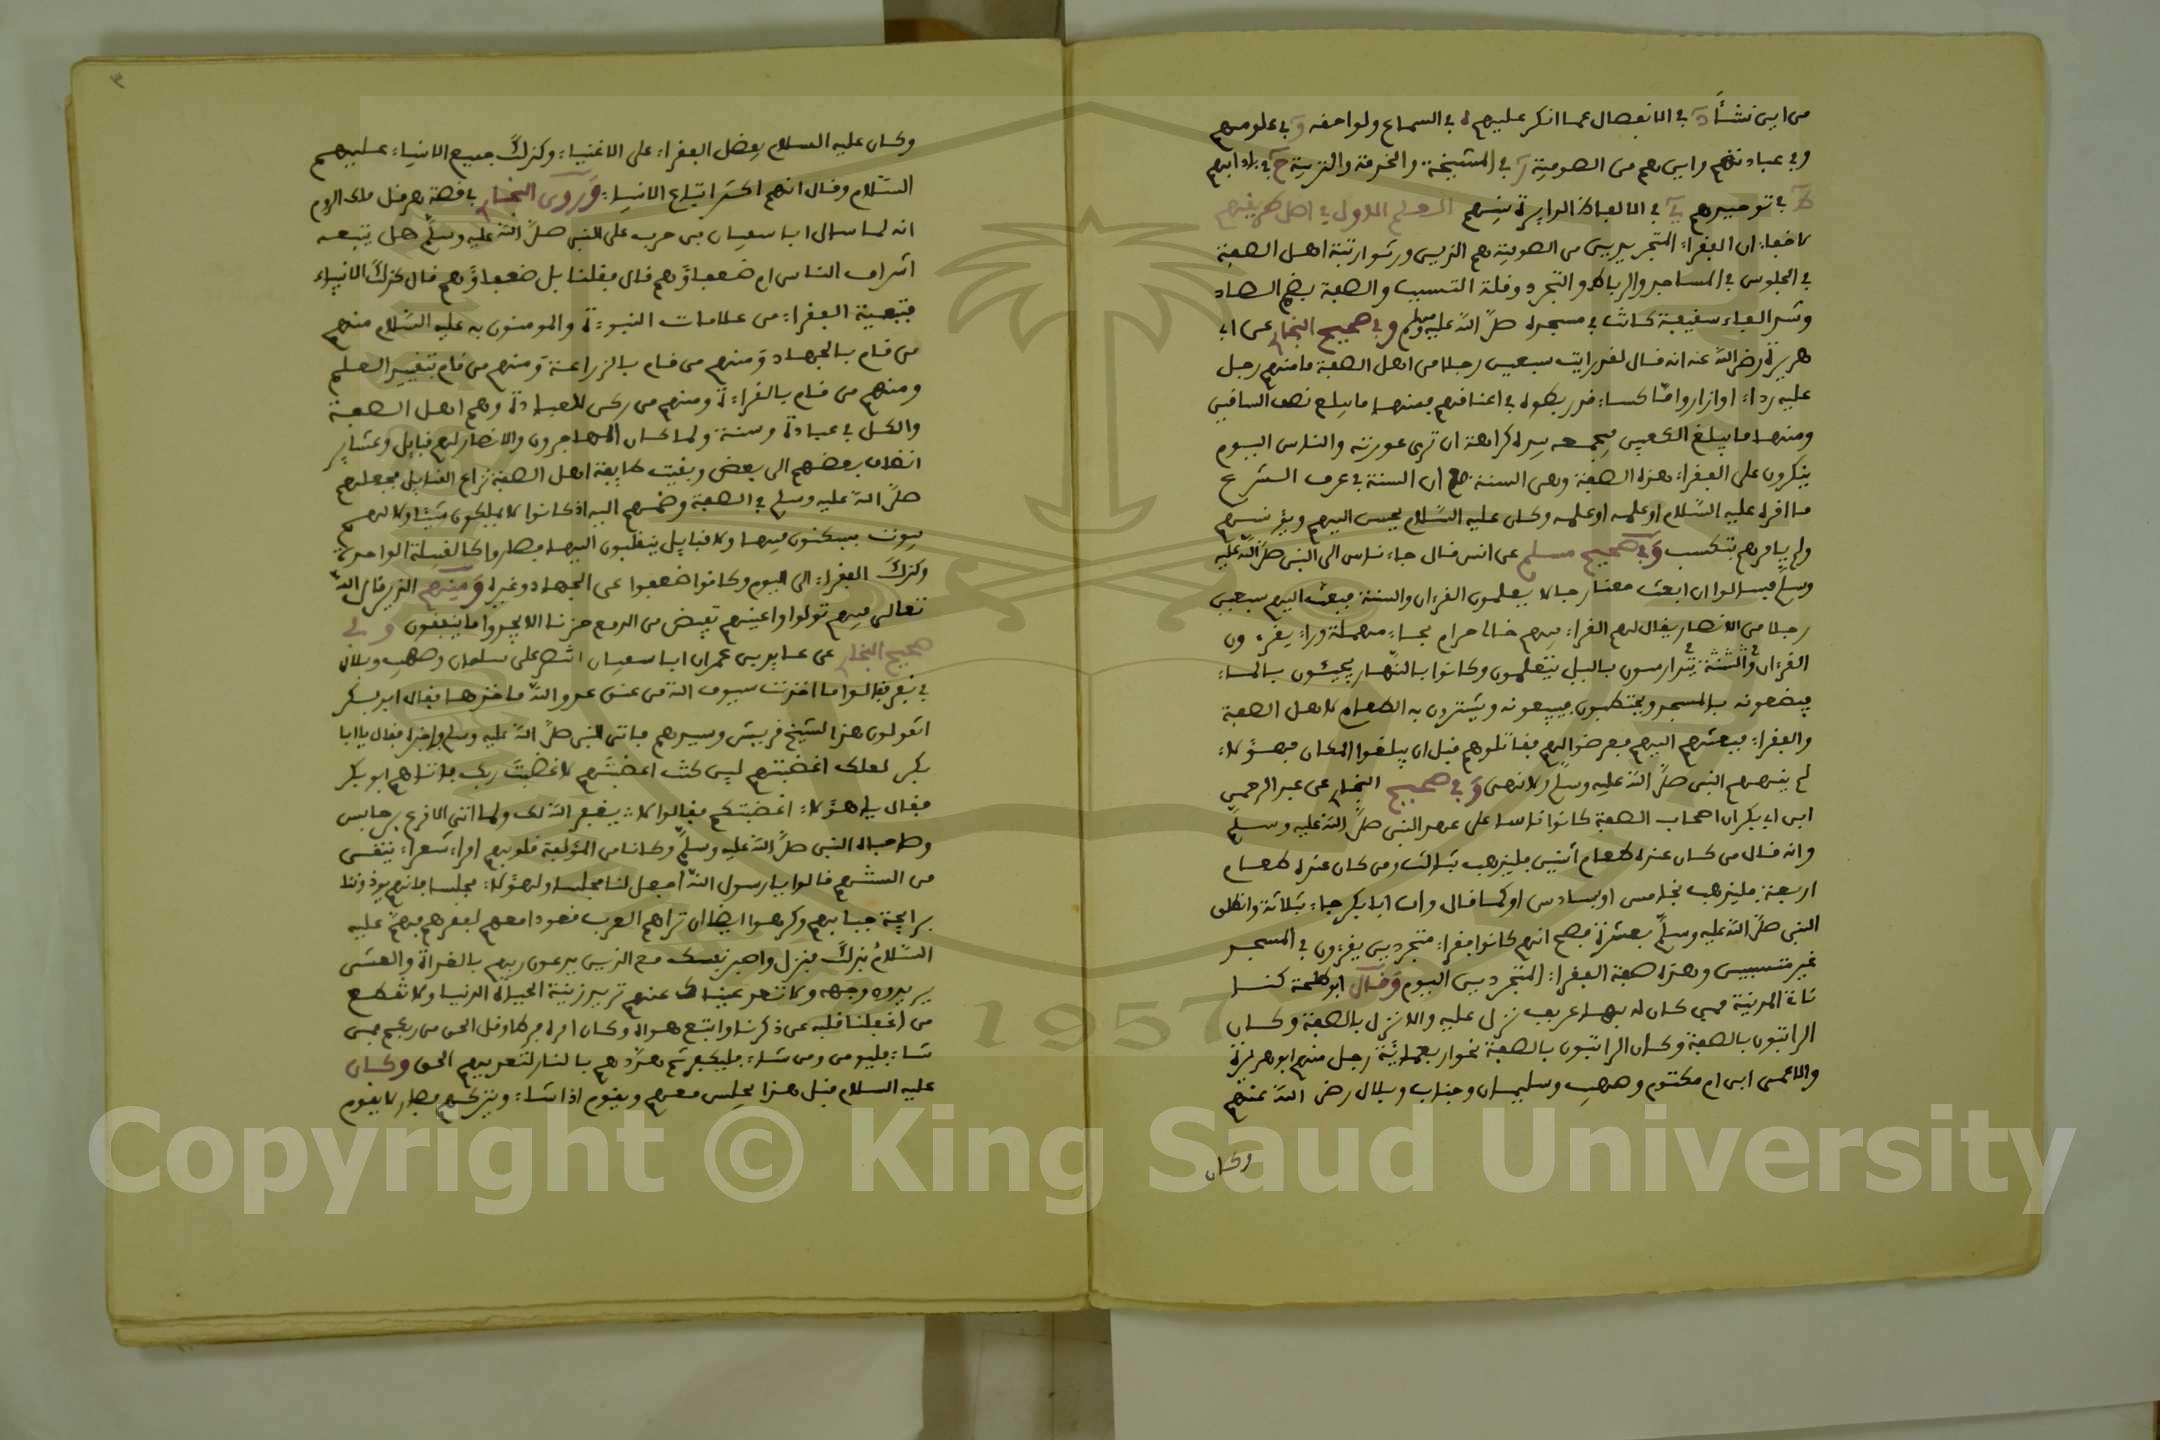 من اين نشأ د في الانفصال عما انكر عليهم ه في السماع ولواحقه و في علومهم
وفي عبادتهم واين هم من الصوفية ز في المشيخة والخرقة والتربية ح في بداايهم
ط في توحيدهم ي في الالفاظ الدايرة بينهم العلم الاول في اصل طريقهم
لا خفاء ان الفقراء المتجريدين من الصوفية هم الذين ورثوا رتبة اهل الصفة
في الجلوس في المساجد والرباط والتجرد وقلة التسبب والصفة بضم الصاد
وشد الفاء سقيفة كانت في مسجده صلى الله عليه وسلم وفي صحيح البخاري عن ابي
هريرة رضي الله عنه انه قال لقد رايت سبعين رجلا من اهل الصفة ما منهم رجل
عليه رداء اوازار واما كساء قد ربطوه في اعناقهم فمنها ما يبلغ نصف الساقين
ومنها ما يبلغ الكعبين فيجمعه بيده كراهة ان ترى عورته والناس اليوم
ينكرون على الفقراء هذه الصفة وهي السنة ان السنة في عرف الشرع
ما اقره عليه السلام او علمه او عمله وكان عليه السلام يحسن اليهم ويؤنسهم
ولم يامرهم بتكسب وفي صحيح مسلم عن انس قال جاء ناس الى النبي صلى الله عليه
وسلم فسالوا ان ابعث معنا رجالا يعلمون القرءان والسنة فبعث اليهم سبعين
رجلا من الانصار يقال لهم القراء فيهم خالي حرام بحاء مهملة وراء يقرءون
القرءان والسنة يتدارسون بالليل يتعلمون وكانوا بالنهار يجيئون بالماء
فيضعونه بالمسجد ويحتطبون فيبيعونه ويشترون به الطعام لاهل الصفة
والفقراء فبعثهم اليهم فعرضوا لهم فقاتلوهم قبل ان يبلغوا المكان فهؤلاء
لم ينههم النبي صلى الله عليه وسلم ولا نهى وفي صحيح البخاري عن عبد الرحمن
ابن ابي بكر ان اصحاب الصفة كانوا ناسا على عهد النبي صلى الله عليه وسلم
وانه قال من كان عنده طعام اثنين فليذهب بثالث ومن كان عنده طعام
اربعة فليذهب بخامس او بسادس او كما قال وان ابا بكر جاء بثلاثة وانطلق
النبي صلى الله عليه وسلم بعشرة فصح انهم كانوا فقراء متجردين يقرءون في المسجد
غير متسببين وهذه صفة الفقراء المتجردين اليوم وقال ابو طلحة كنا
ناة المدينة فمن كان له بها عريف نزل عليه والا نزل بالصفة وكان
الراتبون بالصفة وكان الراتبون بالصفة نحو اربعمائة رجل منهم ابو هريرة
والاعمى ابن ام مكتوم وصهيب وسليمان وخباب وبلال رضي الله عنهم
وكان
٣
وكان عليه السلام يفضل الفقراء على الاغنياء وكذلك جميع الانبياء عليهم
السلام وقال انهم اكثر اتباع الانبياء وروى البخاري في قصة هرقل ملك الروم
انه لما سال ابا سفيان بن حرب على النبي صلى الله عليه وسلم هل يتبعه
اشراف الناس ام ضعفاؤهم قال فقلنا بل ضعفاؤهم قال كذلك الانبياء
فتبعية الفقراء من علامات النبوءة والمومنون به عليه السلام منهم
من قام بالجهاد ومنهم من قام بالزراعة ومنهم من قام بتقييد العلم
ومنهم من قام بالقراءة ومنهم من ركن للعبادة وهم اهل الصفة
والكل في عبادة وسنة ولما كان المهاجرون والانصار لهم قبايل وعشاير
انضاف بعضهم الى بعض وبقيت طايفة اهل الصفة نزاع القبايل فجعلهم
صلى الله عليه وسلم في الصفة وضمهم اليه اذ كانوا لا يملكون شيئا ولا لهم
بيوت يسكنون فيها ولا قبايل ينقلبون اليها فصاروا كالقبيلة الواحدة
وكذلك الفقراء الى اليوم وكانوا ضعفوا عن الجهاد وغيره ومنهم الذين قال الله
تعالى فيهم تولوا واعينهم تفيض من الدمع حزنا الا يجدوا ما ينفقون وفي
صحيح البخاري عن عايد بن عمر ان ابا سفيان اتى على سلمان وصهيب وبلال
في نفر فقالوا ما اخذت سيوف الله من عنق عدو الله ماخذها فقال ابو بكر
اتقولون هذا لشيخ قريش وسيدهم فاتى النبي صلى الله عليه وسلم واخبره فقال يا ابا
بكر لعلك اغضبتهم ليس كنت اغضبتهم لا غضبت ربك فاتاهم ابو بكر
فقال يا هؤلاء اغضبتكم فقالوا لا يغفر الله لك ولما اتى الاقرع بن حابس
وصاحباه النبي صلى الله عليه وسلم وكانا من المؤلفة قلوبهم
من الشهم قالوا يا رسول الله اجعل لنا مجلسا ولهؤلاء مجلسا فانهم يوذوننا
برايحة جبابهم وكرهوا ايضا ان تراهم العرب قعودا معهم لفقرهم فهم عليه
السلام بذلك فنزل واصبر نفسك مع الذين يدعون ربهم بالغداة والعشي
يريدون وجهه ولا تعد عيناك عنهم تريد زينة الحياة الدنيا ولا تطع
من اغفلنا قلبه عن ذكرنا واتبع هواه وكان امره فرطا وقل الحق من ربكم فمن
شاء فليومن ومن شاء فليكفر ثم هددهم بالنار لتعديهم الحق وكان
عليه السلام قبل هذا يجلس معهم ويقوم اذا شاء ويتركهم فصار لا يقوم